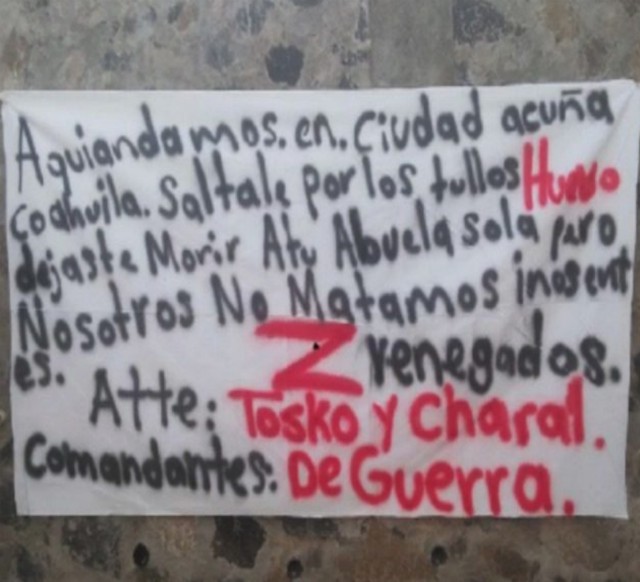 Aquiandamos. en. Ciudad acuña
coahuila. Saltale por los tullos Huevo
dejaste Morir Atu Abuela sola pero
Nosotros No Matamos inosent
es. Z renegados.
Atte: Tosko y Charal.
Comandantes: De Guerra.